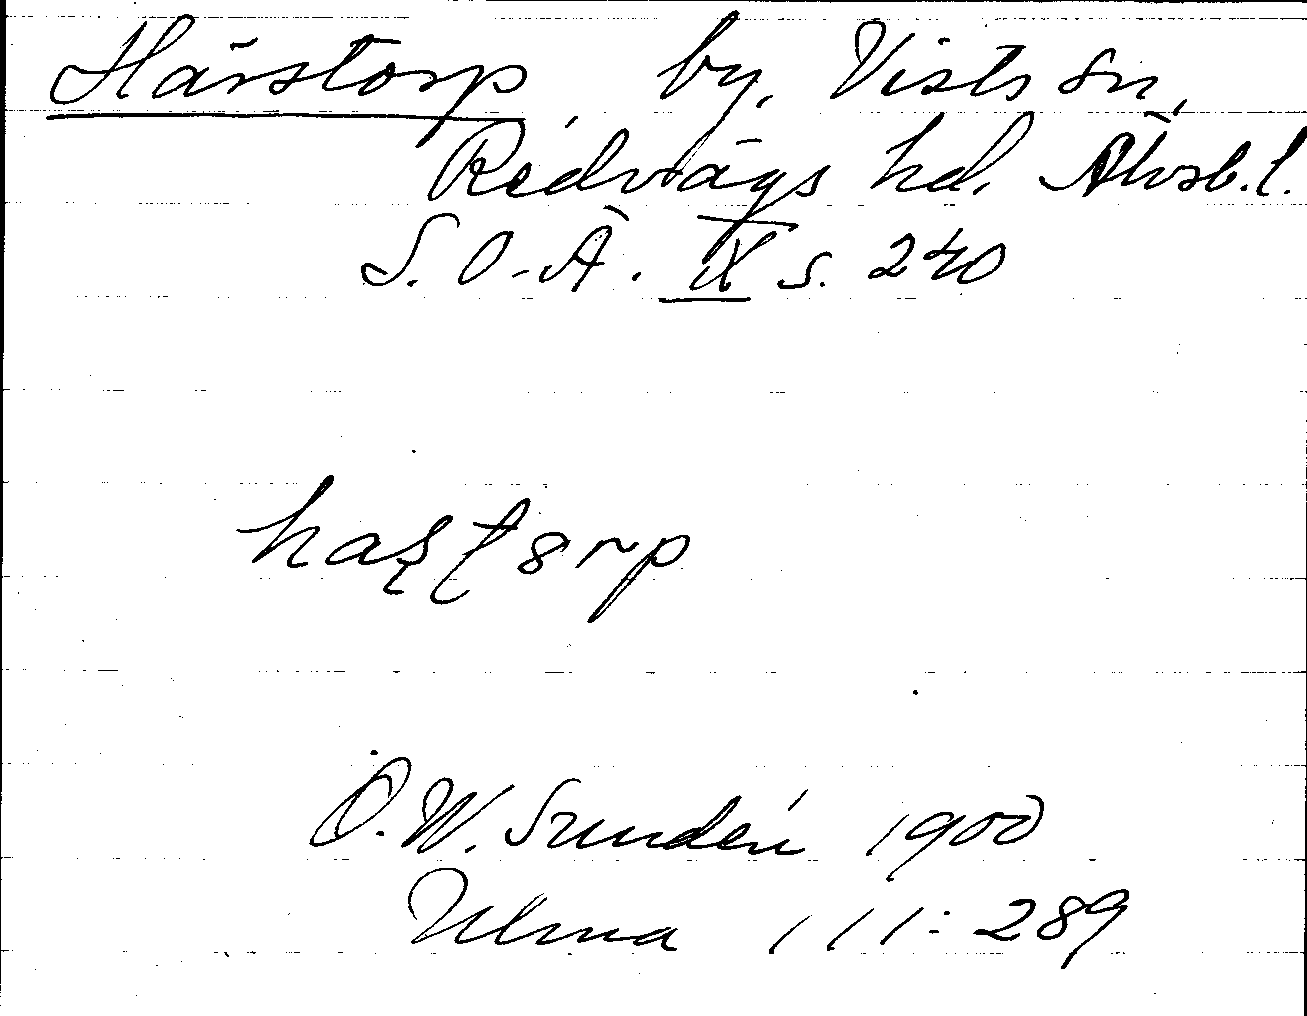 Härstorp, by, Vists sn,
Redvägs hd. Älvsb. l.
S. O. Ä. IX s. 240
haʂʈ8rp
O. W. Sundén 1900
Ulma 111:289